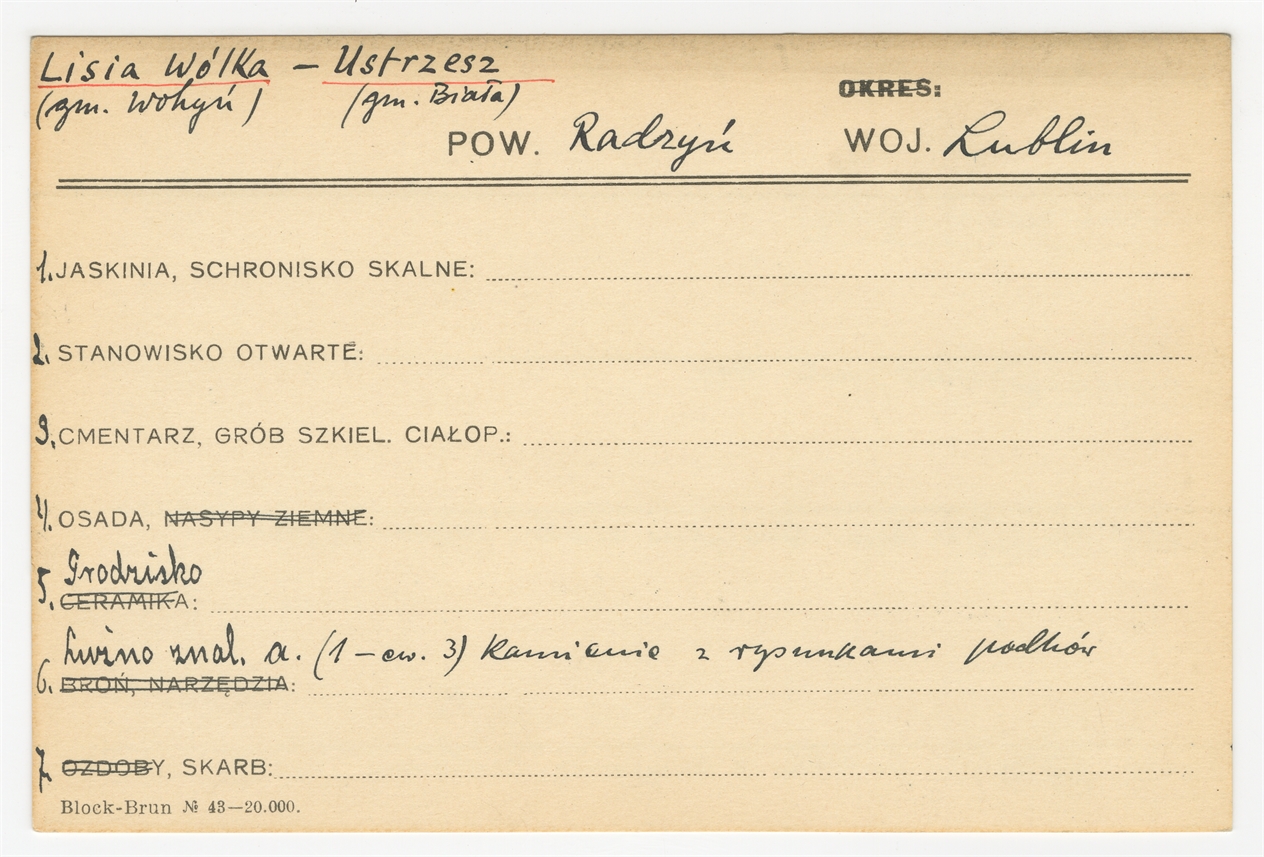 Lisia Wólka – Ustrzesz
(gm. Wohyń) (gm. Biała)
OKRES:
POW. Radzyń WOJ. Lublin
1. JASKINIA, SCHRONISKO SKALNE:
2. STANOWISKO OTWARTE:
3. CMENTARZ, GRÓB SZKIEL. CIAŁOP.:
4. OSADA, NASYPY ZIEMNE:
Grodzisko
5. CERAMIKA:
Luźno znal. a. (1 – ew. 3) kamienie z rysunkami podków
6. BROŃ, NARZĘDZIA:
7. OZDOBY, SKARB:
Block-Brun № 43—20.000.